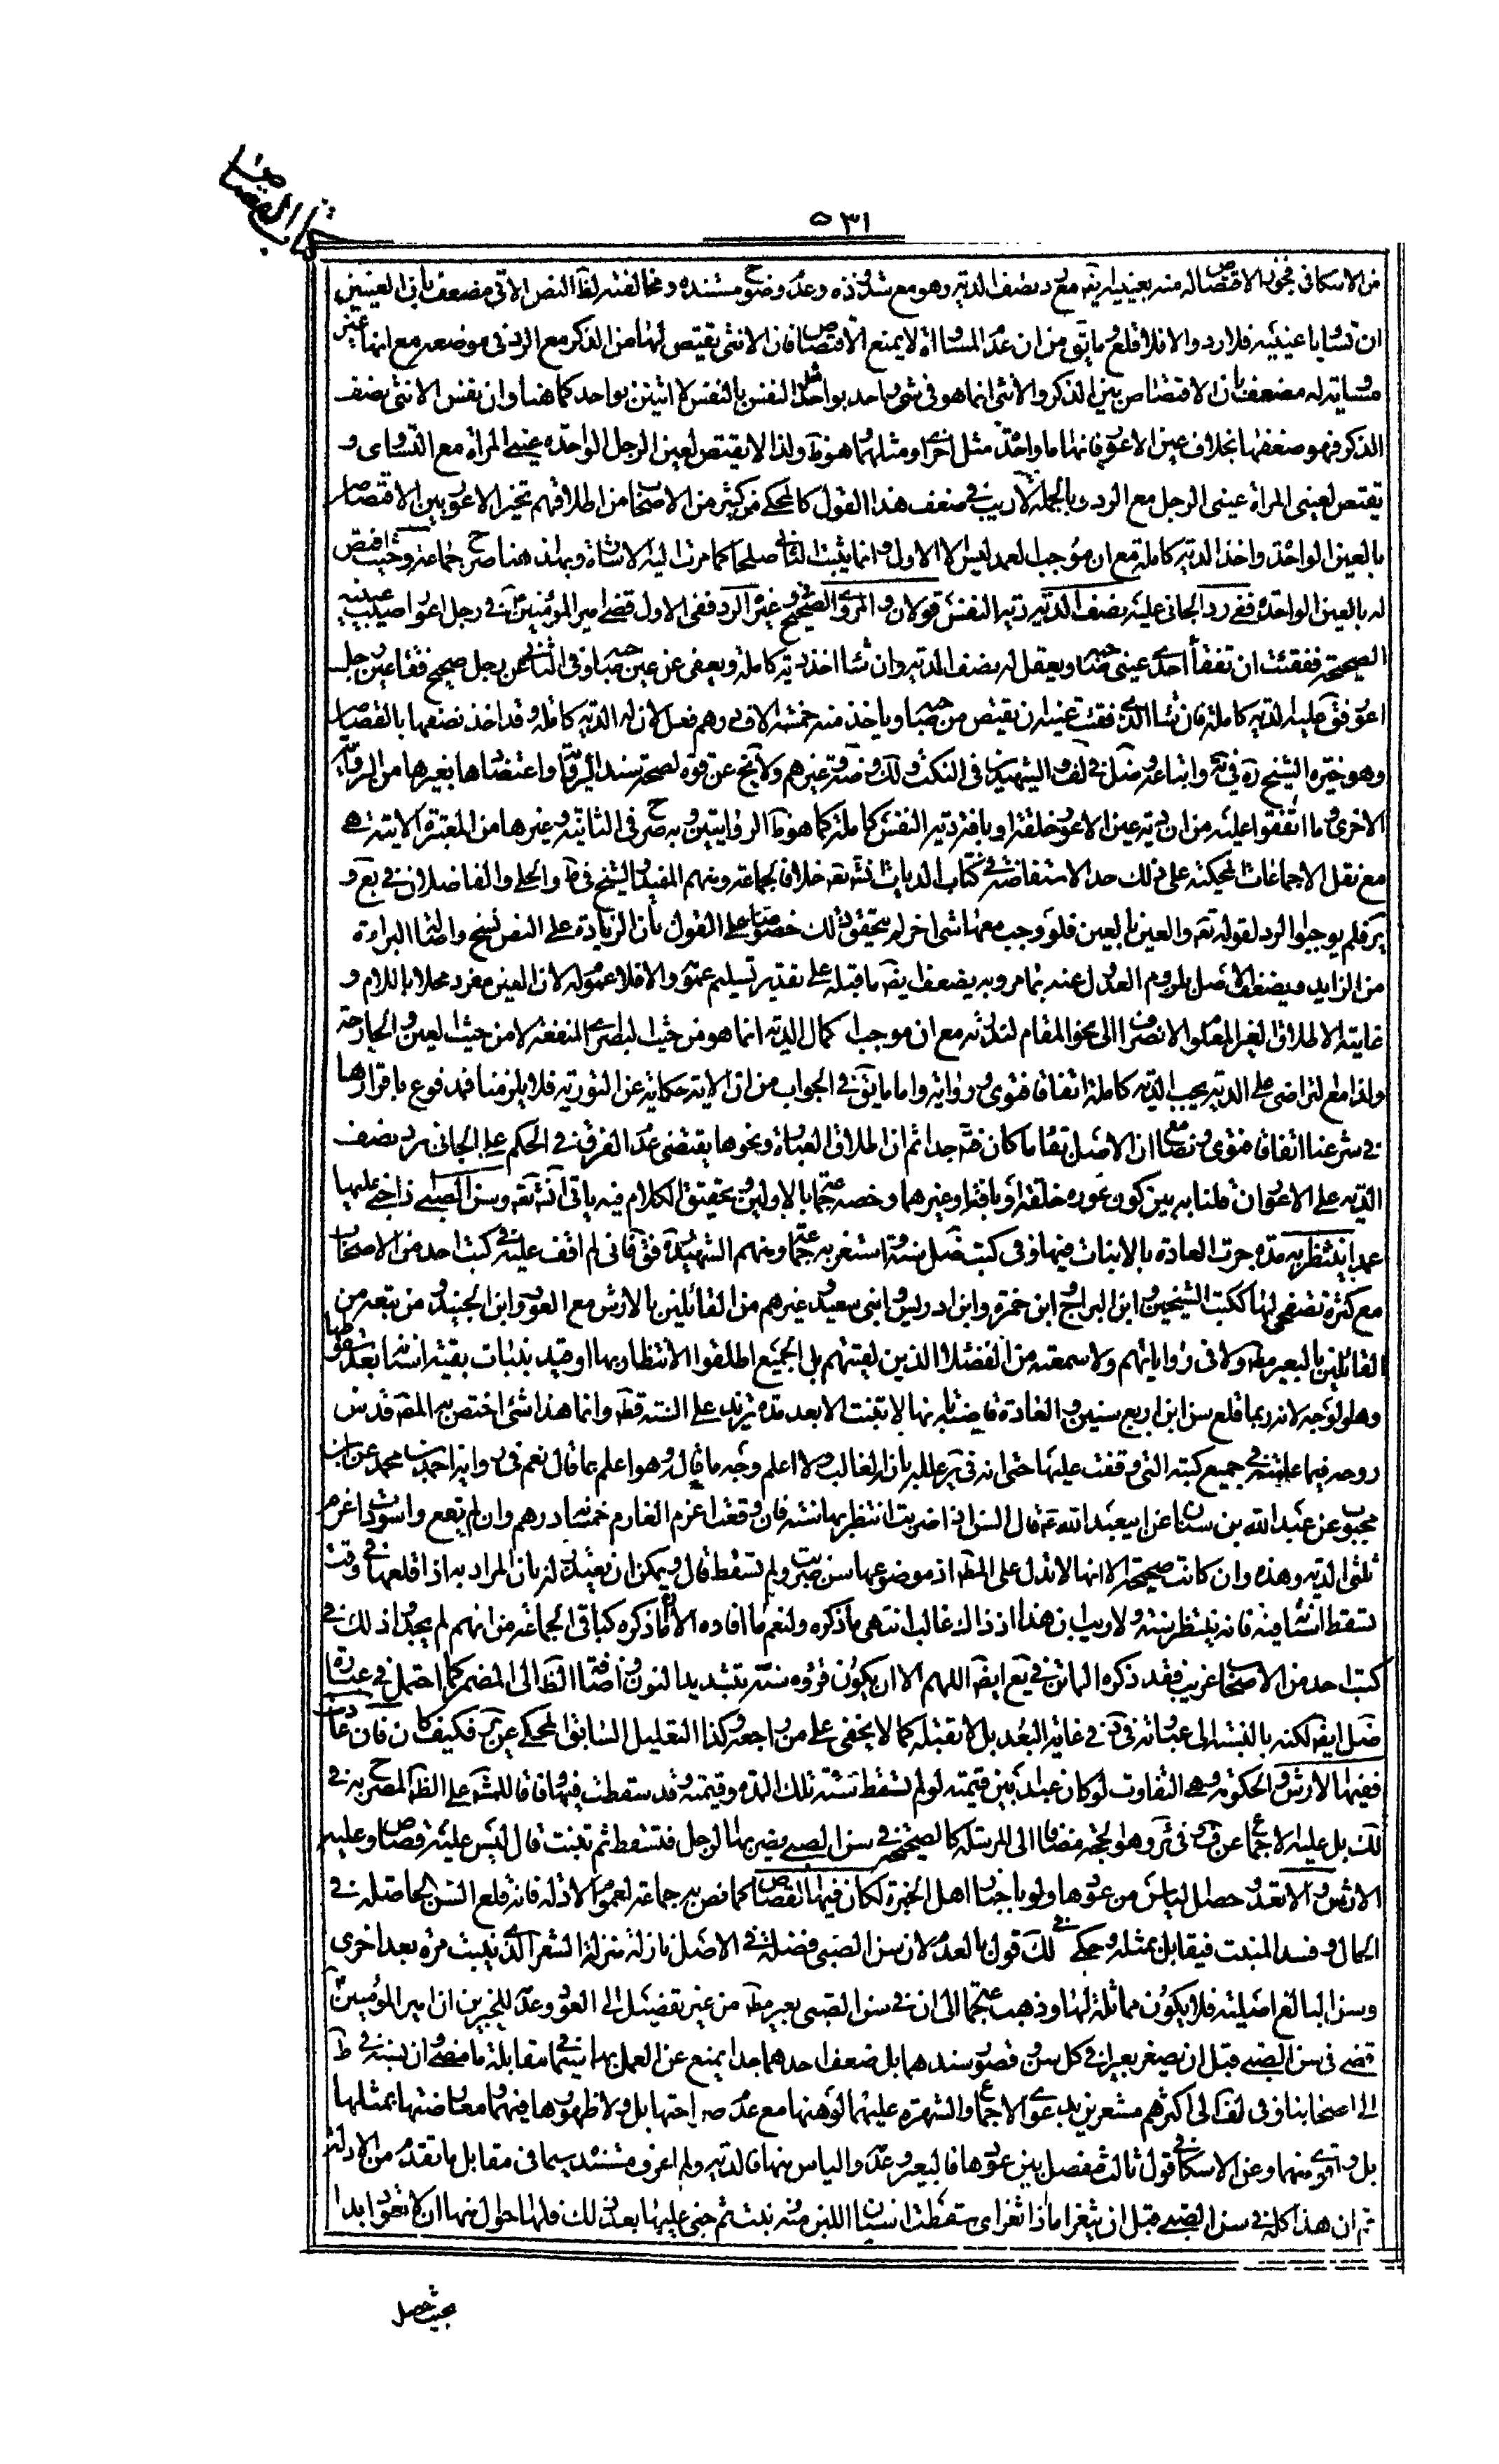 كتاب القصاص
٥٣١
من الاسكافى فجوز الاقتصاص له منه بعينيه ايضه مع رد نصف الدية وهو مع شذوذه وعدم وضوح مستنده ومخالفته لظ النص الاتى مضعف بان العينين
ان تساويا عينيه فلا رد والا فلا قلع وما يق من ان عدم المساواة لا يمنع الاقتصاص فان الانثى يقتص لها من الذكر مع الرد فى موضعه مع انها غير
مساوية له مضعف بان الاقتصاص بين الذكر والانثى انما هو فى شئ واحد بواحد مثل النفس بالنفس لا اثنين بواحد كما هنا وان نفس الانثى نصف
الذكر فهو ضعفها بخلاف عين الاعور فانها اما واحدة مثل اخرى او مثلهما هو ظ ولذا لا يقتص لعين الرجل الواحدة عينى المراة مع التساوى و
يقتص لعينى المراة عينى الرجل مع الرد وبالجملة لا ريب فى ضعف هذا القول كالمحكى عن كثير من الاصحاب من اطلاقهم تخير الاعور بين الاقتصاص
بالعين الواحدة واخذ الدية كاملة مع ان موجب العمد ليس الا الاول وانما يثبت الثانى صلحا كما مرت اليه الاشارة وبهذ هنا صرح جماعة وحيث اقتص
له بالعين الواحدة ففى رد الجانى عليه نصف الدية دية النفس قولان والمروى فى الصحيح وغيره الرد ففى الاول قضى امير المؤمنين ع فى رجل اعور اصيبت عينه
الصحيحة ففقئت ان تفقأ احدى عينى صاحبه ويعقل له نصف الدية وان شاء اخذ دية كاملة ويعفى عن عين صاحبه وفى الثانى عن رجل صحيح فقأ عين رجل
اعور فق عليه الدية كاملة فان شاء الذى فقئت عينه ان يقتص من صاحبه وياخذ منه خمسة الاف درهم فعل لان له الدية كاملة وقد اخذ نصفها بالقصاص
وهو خيرة الشيخ ره فى يه واتباعه وضل فى لف والشهيدين فى النكت ولك وضه وغيرهم ولا يخ عن قوة لصحة سند الرواية واعتضادها بغيرها من الرواية
الاخرى وما اتفقوا عليه من ان دية عين الاعور خلقة او بافة دية النفس كاملة كما هو ظ الروايتين وبه صرح فى الثانية وغيرها من المعتبرة الاتية هى
مع نقل الاجماعات المحكية على ذلك حد الاستفاضة فى كتاب الديات انشه تعه خلافا لجماعة ومنهم المفيد والشيخ فى ف والحلى والفاضلان فى يع و
ير فلم يوجبوا الرد لقوله تعه والعين بالعين فلو وجب معها شئ اخر لم يتحقق ذلك خصوصا على القول بان الزيادة على النص نسخ واصالة البراءة
من الزايد ويضعف الاصل بلزوم العدول عنه بما مر وبه يضعف ايضه ما قبله على تقدير تسليم عمومه والا فلا عموم له لان العين مفرد محلى باللام و
غايته الاطلاق الغير المعلوم الانصراف الى نحو المقام لندرته مع ان موجب كمال الدية انما هو من حيث البصر والمنفعة لا من حيث العين والجارحة
ولذا مع التراضى على الدية يجب الدية كاملة اتفاقا فتوى ورواية واما ما يق فى الجواب من ان الاية حكاية عن التورية فلا يلزمنا فمدفوع باقرارها
فى شرعنا اتفاقا فتوى ونصا مع ان الاصل بقاء ما كان فته جدا ثم ان اطلاق العبارة ونحوها يقتضى عدم الفرق فى الحكم على الجانى برد نصف
الدية على الاعور ان قلنا به بين كون عوره خلقة او بافة او غيرهما وخصه جماعة بالاولين وتحقيق الكلام فيه ياتى انشه تعه وسن الصبى اذا جنى عليها
عمدا ينتظر به مدة جرت العادة بالانبات فيها وفى كتب ضل سنة واستغر به جماعة ومنهم الشهيد ره فق فانى لم اقف عليه فى كتب احد من الاصحاب
مع كثرة تصفحى لها ككتب الشيخين وابن البراج وابن حمزة وابن ادريس وابنى سعيد وغيرهم من القائلين بالارش مع العود وابن الجنيد ومن تبعه من
القائلين بالبعير مطه ولا فى رواياتهم ولا سمعته من الفضلاء الذين لقيتهم بل الجميع اطلقوا الانتظار بها او قيد بنبات بقية اسنانه بعد سقوطها
وهو الوجه لانه ربما قلع سن ابن اربع سنين والعادة قاضية بانها لا تنبت الا بعد مدة تزيد على السنة قطه وانما هذا شئ اختص به المصه قدس
روحه فيما علمته فى جميع كتبه التى وقفت عليها حتى انه فى ير علله بان الغالب ولا اعلم وجه ما قال وهو اعلم بما قال نعم فى رواية احمد بن محمد عن ابن
محبوب عن عبد الله بن سنان عن ابى عبد الله ع قال السن اذا ضربت انتظر بها سنة فان وقعت اغرم الضارب خمسمائة درهم وان لم يقع واسودت اغرم
ثلثى الدية وهذه وان كانت صحيحة الا انها لا تدل على المطه اذ موضوعها سن ضربت ولم تسقط قال ويمكن ان يعتذر له بان المراد به اذا قلعها فى وقت
تسقط اسنانه فيه فانه ينتظر سنة ولا ريب ان هذا اذ ذاك غالب انتهى ما ذكره ولنعم ما افاده الا ان ما ذكره كباقى الجماعة من انهم لم يجدوا ذلك فى
كتب احد من الاصحاب غريب فقد ذكره الماتن فى يع ايضه اللهم الا ان يكون قرؤه سنه بتشديد النون واضافة الظ الى المضمر كما احتمل فى عبارة
ضل ايضه لكنه بالنسبة الى عبارته فى ير فى غاية البعد بل لا تقبله كما لا يخفى على من راجعه وكذا التعليل السابق المحكى عن ير فكيف كان فان عادت
ففيها الارش والحكومة وهى التفاوت لو كان عبدا بين قيمته لو لم تسقط سنه تلك المدة وقيمته وقد سقطت فيها وفاقا للمشه على الظ المصرح به فى
لك بل عليه الاجماع عن ف وفى ئر وهو الحجة مضافا الى المرسلة كالصحيحة فى سن الصبى يضربها الرجل فتسقط ثم تنبت قال ليس عليه قصاص وعليه
الارش والا تعد وحصل الياس من عودها ولو باخبار اهل الخبرة لكان فيها القصاص كما نص به جماعة لعموم الادلة فانه قلع السن الحاصلة فى
الحال وفسد المنبت فيقابل بمثله وحكى فى لك قول بالعدم لان سن الصبى فضلة فى الاصل نازلة منزلة الشعر الذى ينبت مرة بعد اخرى
وسن البالغ اصلية فلا يكون مماثلة لها وذهب جماعة الى ان فى سن الصبى بعير مطه من غير تفصيل الى العود وعدمه للخبرين ان امير المؤمنين ع
قضى فى سن الصبى قبل ان يصغر بعيرا فى كل سن وقصور سندهما بل ضعف احدهما جدا يمنع عن العمل بهما سيما فى مقابلة ما مضى وان نسبه فى ط
الى اصحابنا وفى لف الى اكثرهم مشعرين بدعوى الاجماع والشهرة عليهما لوهنها مع عدم صراحتها بل ولا ظهورها فيهما معارضتها بمثلها
بل واقوى منهما وعن الاسكافى قول ثالث مفصل بين عودها فالبعير وعدمه والياس منها فالدية ولم اعرف مستنده سيما فى مقابل ما تقدم من الادلة
ثم ان هذا كله فى سن الصبى قبل ان يثغر اما اذا ثغر اى سقطت اسنان اللبن منه ونبت ثم جنى عليها بعد ذلك فلها احوال منها ان لا تعود ابدا
بحيث حصل